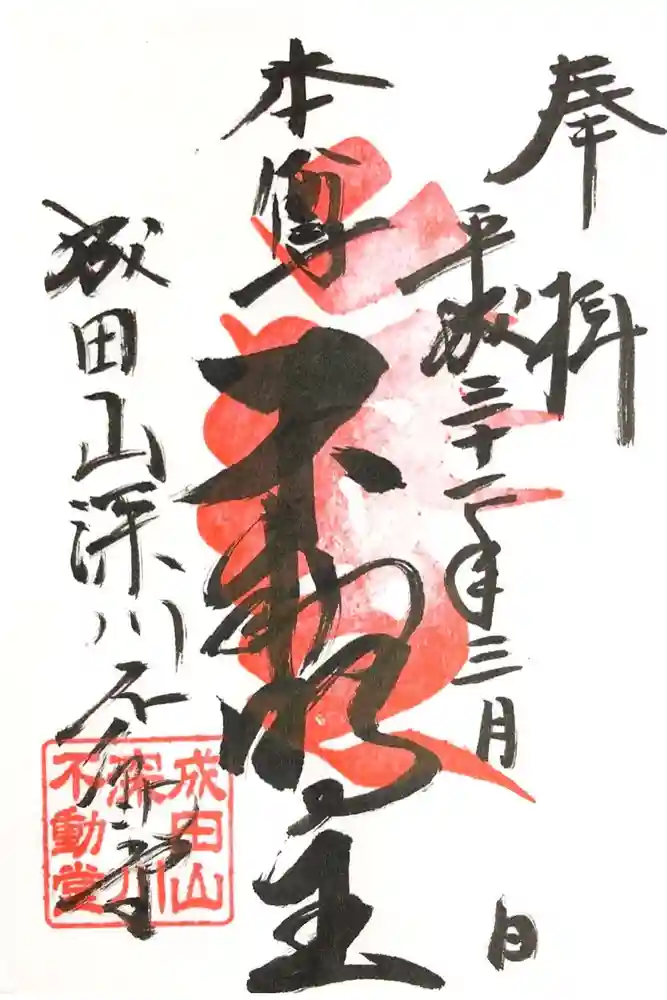 奉拝
平成三十一年三月 日
本尊
不動明王
成田山深川不動堂
成田山
深川
不動堂